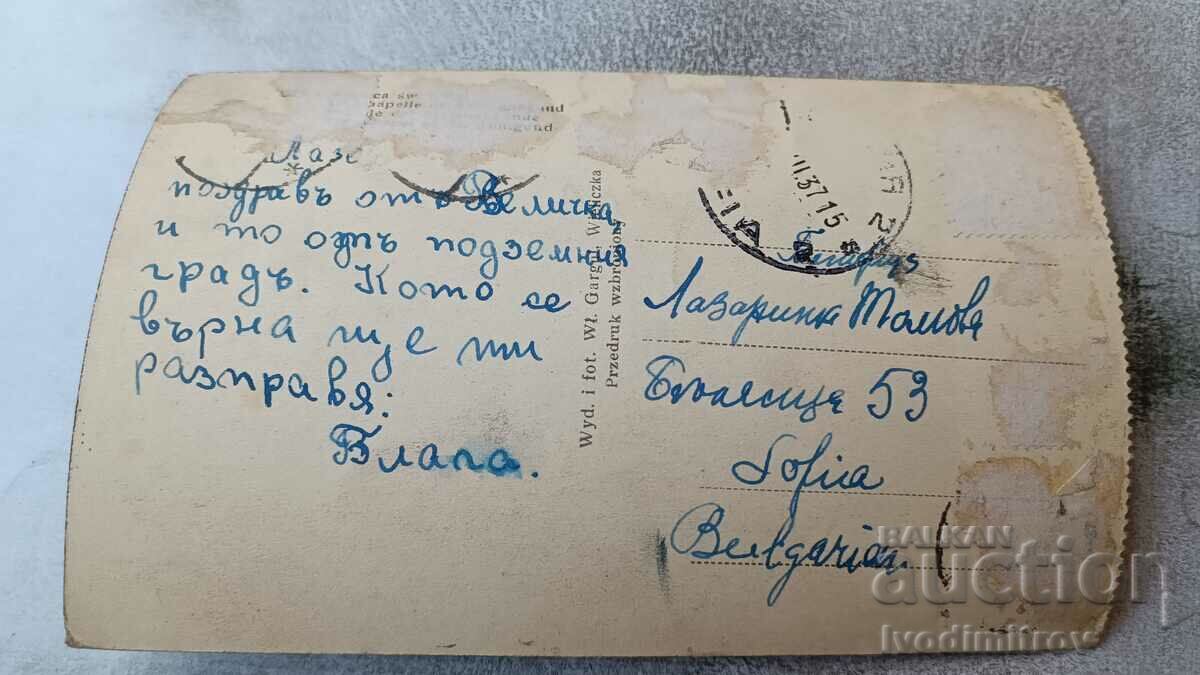 ca sw
apelle
und
Лазе
поздравъ отъ Величка,
и то отъ подземния
градъ. Като се
върна ще ти
разправя:
Блага.
Wyd. i fot. Wł. Gargul, Wieliczka
Przedruk wzbroniony
37 15
Лазаринка Томова
53
Sofia
Bulgarian
BALKAN
auction
Ivodimitrov